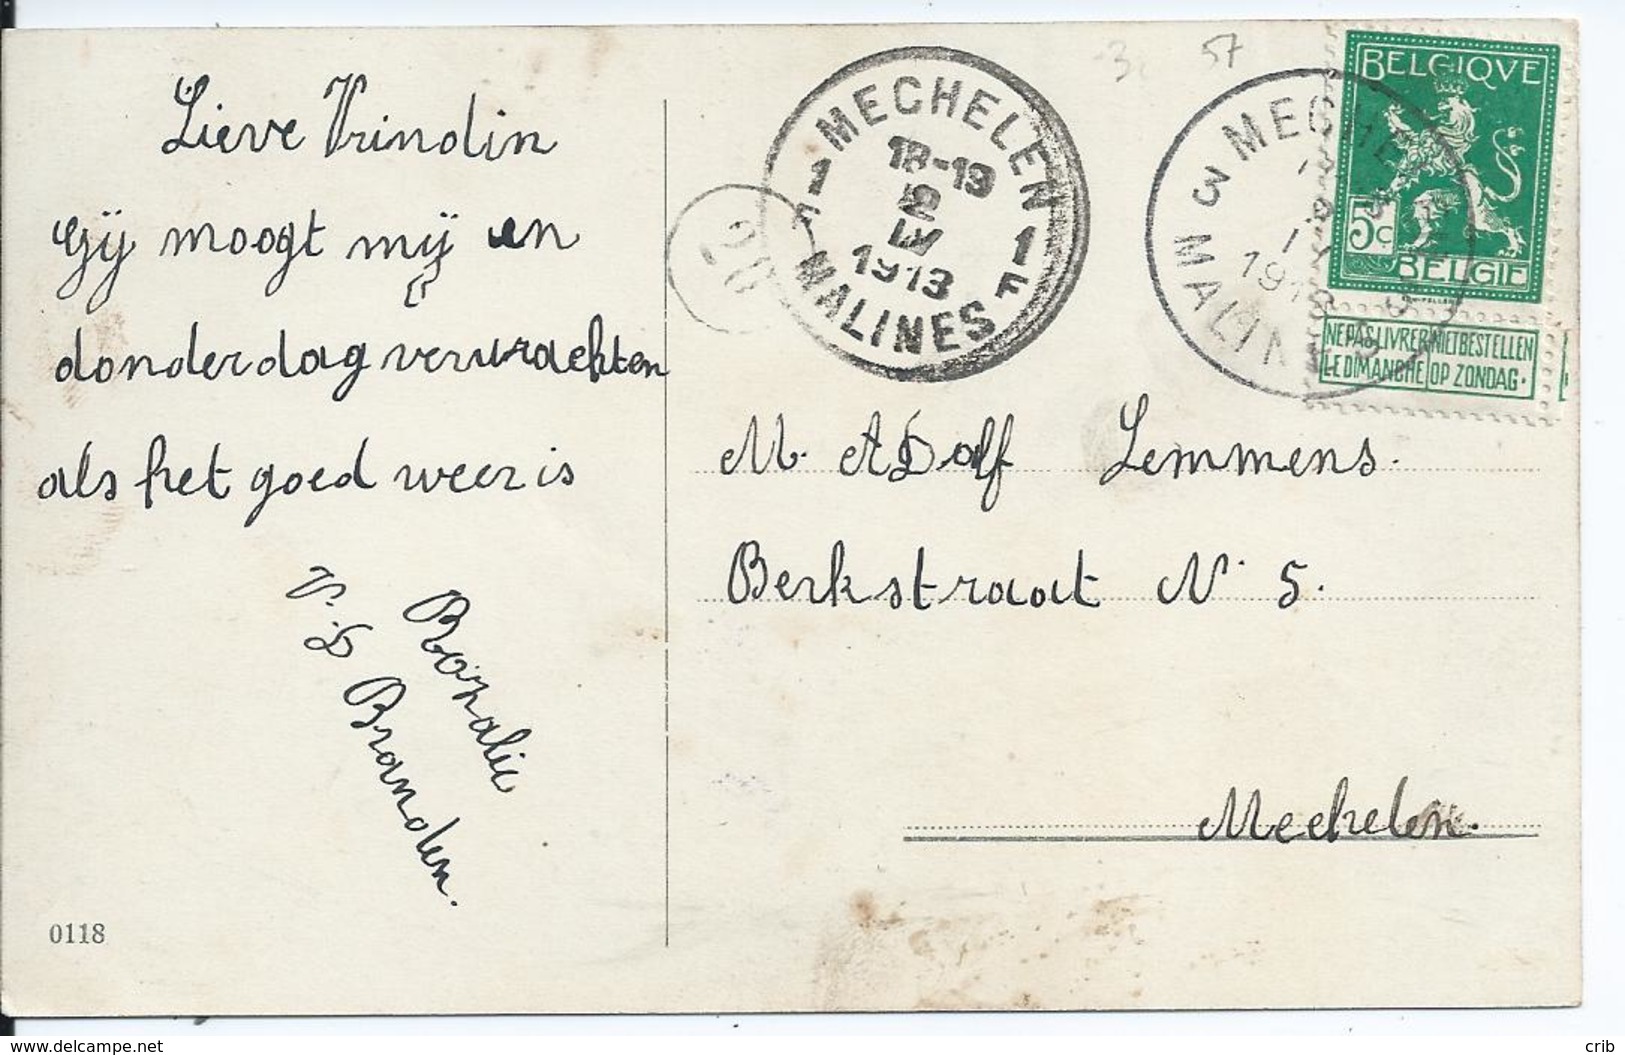 Lieve Vrindin
Gÿ moogt mÿ en
donderdag verwachten
als het goed weer is
Rozalie
V. D Branden.
0118
MECHELEN
1 1
18-19
2
IV
1913
F F
MALINES
20
57
3 MECHE
1913
MALIN
BELGIQVE
5c
BELGIE
NE PAS LIVRER NIET BESTELLEN
LE DIMANCHE OP ZONDAG.
M. ADolf Lemmens.
Berkstraat N. 5.
Mechelen.
delcampe.net
crib